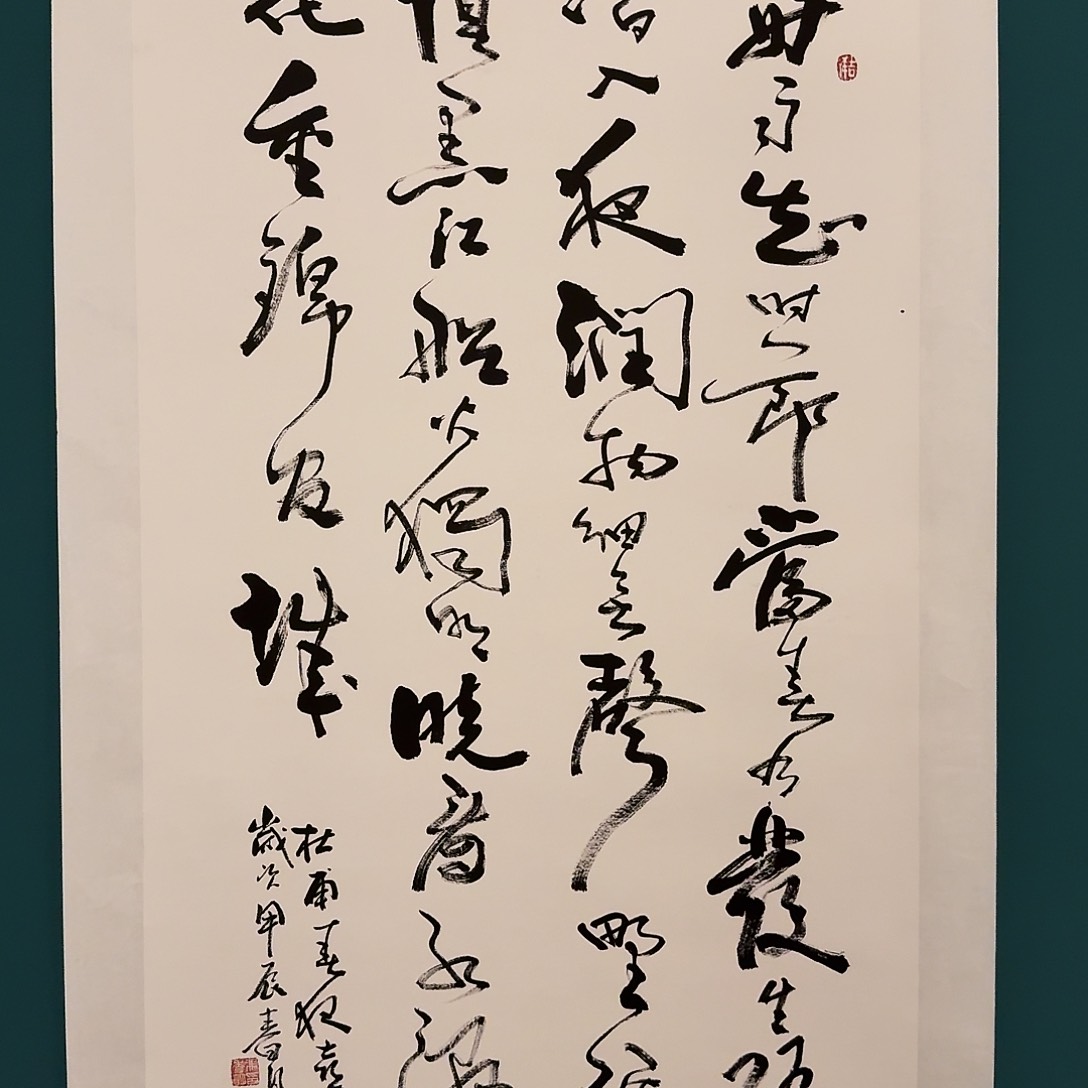 好雨知時節當春乃發生隨
潛入夜潤物細無聲野徑
俱黑江船火獨明曉看紅濕
花重錦官城
杜甫春夜喜
歲次甲辰春月